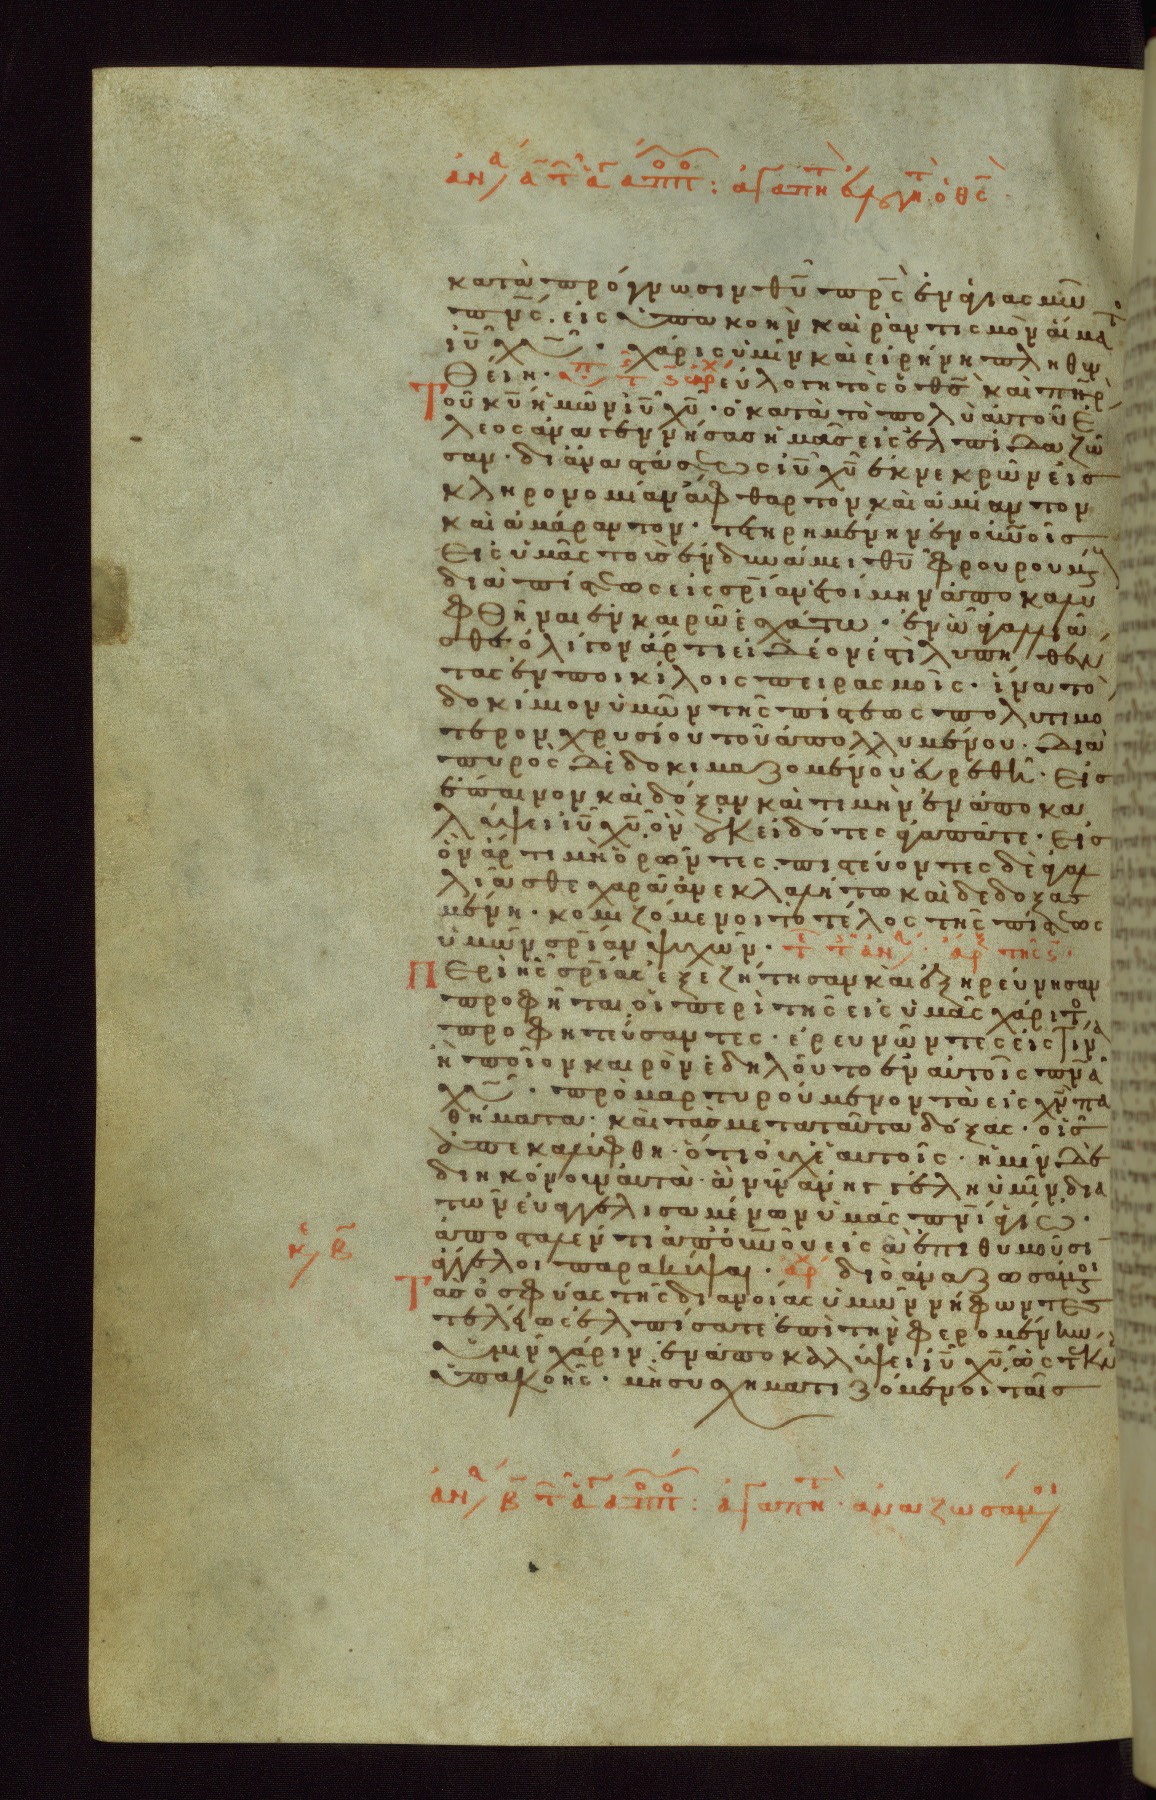 ἀν α τ α ἀππ: ἀγαπητ εὐλογητ ὁ θς
κατὰ πρόγνωσιν θυ πρς ἐν ἁγιασμῶ
πνς. εἰς ὑπακοὴν καὶ ῥαντισμὸν αἵματο
ιυ χυ. χάρις ὑμῖν καὶ εἰρήνη πληθυν
θείη. εὐλογητὸς ὁ θς καὶ πηρ
Τοῦ κυ ἡμῶν ιυ χυ. ὁ κατὰ τὸ πολὺ αὐτοῦ ἔ
λεος ἀναγεννήσας ἡμᾶς εἰς ἐλπίδα ζῶ
σαν. δι ἀναστάσεως ιυ χυ ἐκ νεκρῶν εἰς
κληρονομίαν ἄφθαρτον καὶ ἀμίαντον
καὶ ἀμάραντον. τετηρημένην ἐν οὐνοῖς
Εἰς ὑμᾶς τοὺς ἐν δυνάμει θυ φρουρουμ
διὰ πίστεως εἰς σρίαν ἑτοίμην ἀποκαλυ
φθῆναι ἐν καιρῶ ἐσχάτω. ἐν ᾧ ἀγαλλιᾶ
σθε ὀλίγον ἄρτι εἰ δέον ἐστὶ λυπηθέν
τας ἐν ποικίλοις πειρασμοῖς. ἵνα τὸ
δοκίμιον ὑμῶν τῆς πίστεως πολυτιμο
τερον χρυσίου τοῦ ἀπολλυμένου. διὰ
πυρὸς δὲ δοκιμαζομένου εὑρεθῆ. Εἰς
ἔπαινον καὶ δόξαν καὶ τιμὴν ἐν ἀποκα
λύψει ιυ χυ. ὃν οὐκ εἰδότες ἀγαπᾶτε. Εἰς
ὃν ἄρτι μὴ ὁρῶντες. πιστεύοντες δὲ ἀγαλ
λιᾶσθε χαρᾶ ἀνεκλαλήτω καὶ δεδοξασ
μένη. κομιζόμενοι τὸ τέλος τῆς πίστεως
ὑμῶν σρίαν ψυχῶν.
Περὶ ἧς σρίας ἐξεζήτησαν καὶ ἐξηρεύνησαν
προφῆται οἱ περὶ τῆς εἰς ὑμᾶς χάριτο
προφητεύσαντες. ἐρευνῶντες εἰς τίνα
ἢ ποῖον καιρὸν ἐδηλοῦτο ἐν αὐτοῖς πνα
χυ. προμαρτυρούμενον τὰ εἰς χν πα
θήματα. καὶ τὰς μετα ταῦτα δόξας. οἷς
ἀπεκαλύφθη. ὅτι οὐχ ἑαυτοῖς. ἡμῖν δὲ
διηκόνουν αὐτὰ. ἃ νῦν ἀνηγγέλη ὑμῖν δια
τῶν εὐαγγελισαμένων ὑμᾶς πνι ἁγίω.
ἀποσταλέντι ἀπ οὐνοῦ εἰς ἃ ἐπιθυμοῦσι
ἄγγελοι παρακύψαι. ἀρ διὸ ἀναζωσάμοι
Τας ὀσφύας τῆς διανοίας ὑμῶν νήφοντες
τελείως ἐλπίσατε ἐπὶ τὴν φερομένην
ὑμῖν χάριν. ἐν ἀποκαλύψει ιυ χυ. ὡς τέκν
ὑπακοῆς. μὴ συσχηματιζόμενοι ταῖς
ἀν β τ α ἀππ: ἀγαπητ. ἀναζωσαμοι